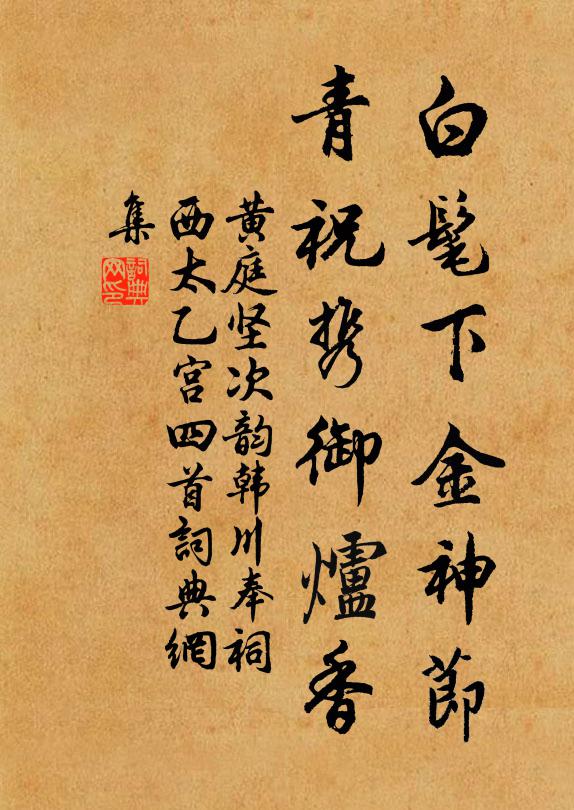 白髦下金神莭
青祝携御爐香
黄庭坚次韵韩川奉祠
西太乙宫四首詞典網
集
詞典
网印